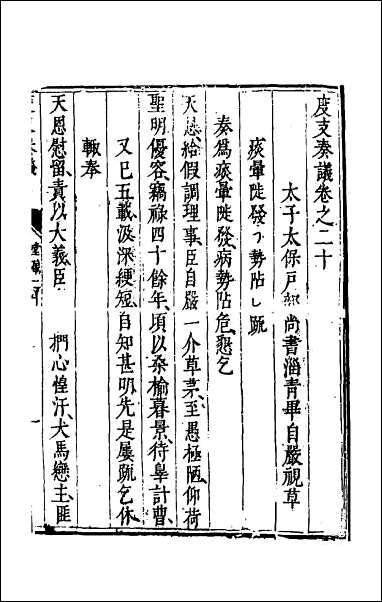 度支奏議卷之二十
太子太保戶部尚書淄青畢自嚴視草
痰暈陡發 勢阽 疏
奏爲痰暈陡發病勢阽危懇乞
天恩給假調理事臣自嚴一介草茅至愚極陋仰荷
聖明優容竊祿四十餘年頃以桑榆暮景待辠計曹
又已五載汲深綆短自知甚明先是屢疏乞休
輒奉
天恩慰留責以大義臣 捫心惶汗犬馬戀主匪
堂稿
一